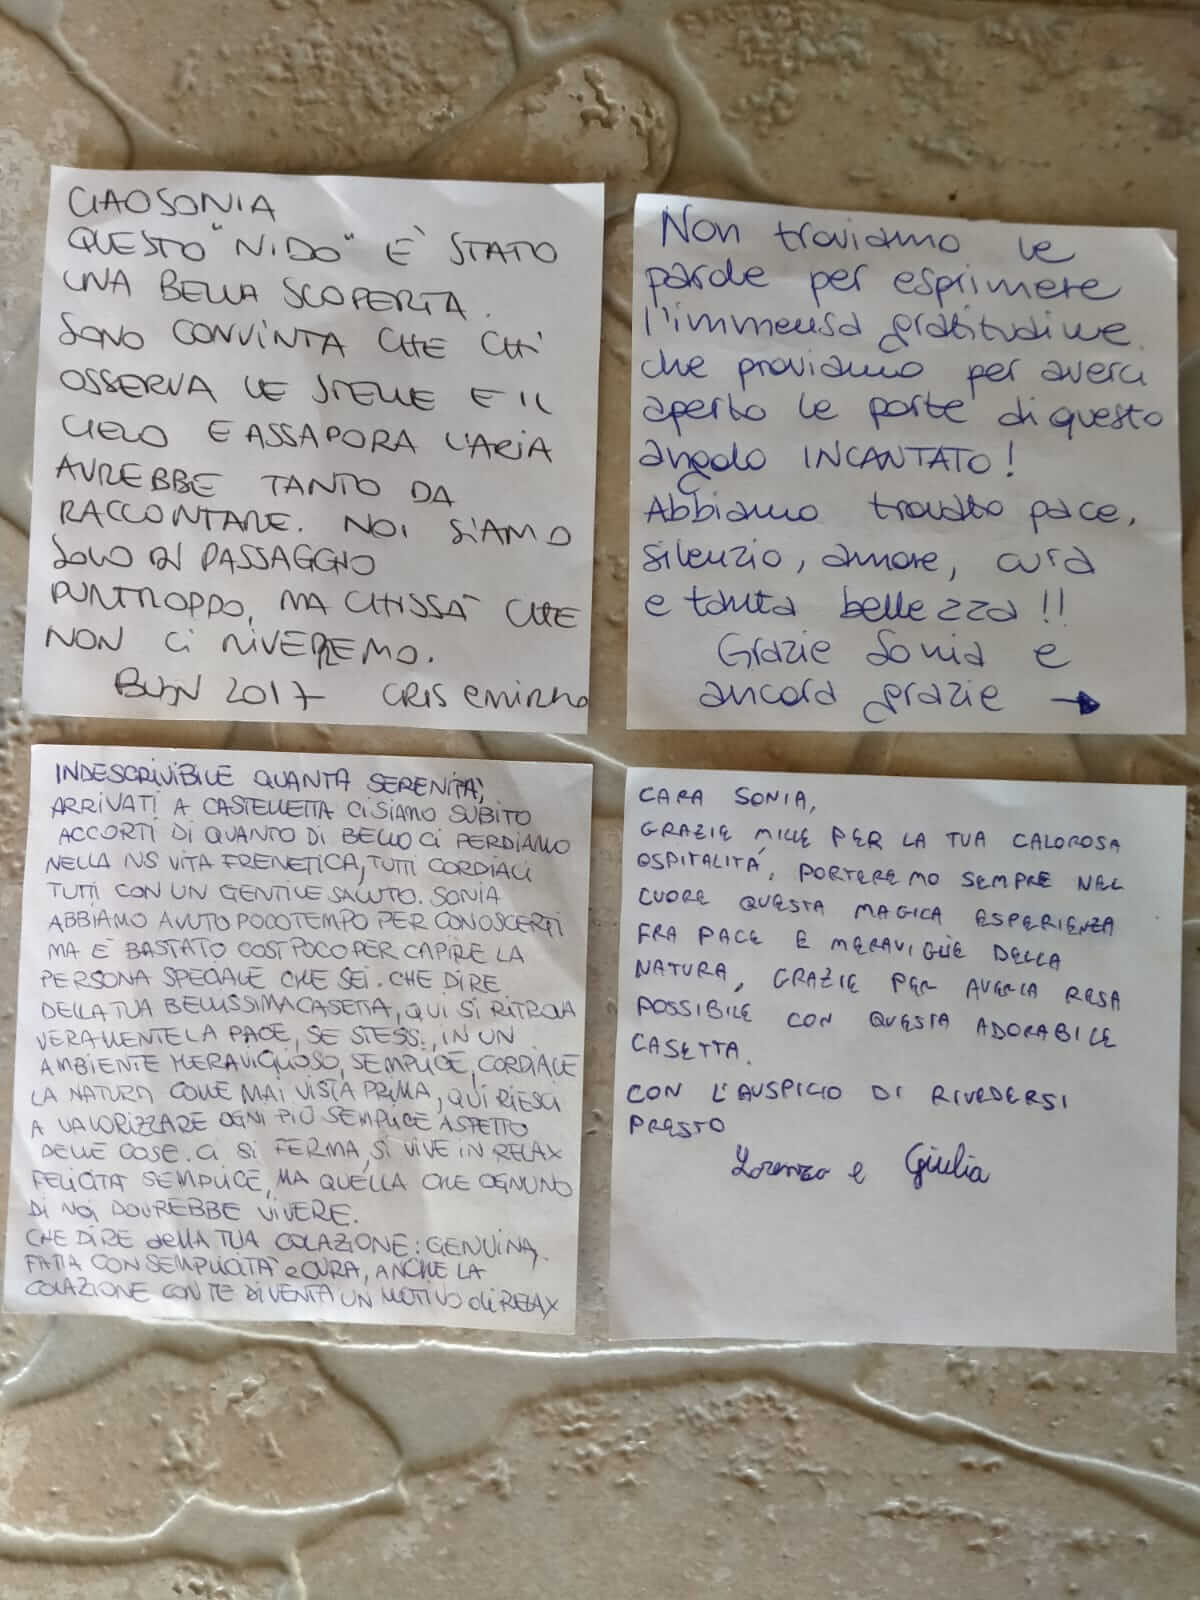 CIAO SONIA
QUESTO "NIDO" E' STATO
UNA BELLA SCOPERTA.
SONO CONVINTA CHE CHI
OSSERVA LE STELLE E IL
CIELO E ASSAPORA L'ARIA
AVREBBE TANTO DA
RACCONTARE. NOI SIAMO
SOLO DI PASSAGGIO
PURTROPPO, MA CHISSA' CHE
NON CI RIVEREMO.
BUON 2017 CRIS e
Non troviamo le
parole per esprimere
l'immensa gratitudine
che proviamo per averci
aperto le porte di questo
angolo INCANTATO!
Abbiamo trovato pace,
silenzio, amore, cura
e tanta bellezza!!
Grazie Sonia e
ancora grazie →
INDESCRIVIBILE QUANTA SERENITA',
ARRIVATI A CASTELLETTA CI SIAMO SUBITO
ACCORTI DI QUANTO DI BELLO CI PERDIAMO
NELLA NS VITA FRENETICA, TUTTI CORDIALI
TUTTI CON UN GENTILE SALUTO. SONIA
ABBIAMO AVUTO POCO TEMPO PER CONOSCERTI
MA E' BASTATO COSI POCO PER CAPIRE LA
PERSONA SPECIALE CHE SEI. CHE DIRE
DELLA TUA BELLISSIMA CASETTA, QUI SI RITROVA
VERAMENTE LA PACE, SE STESSI, IN UN
AMBIENTE MERAVIGLIOSO, SEMPLICE, CORDIALE
LA NATURA COME MAI VISTA PRIMA, QUI RIESCI
A VALORIZZARE OGNI PIÙ SEMPLICE ASPETTO
DELLE COSE. CI SI FERMA, SI VIVE IN RELAX
FELICITA' SEMPLICE, MA QUELLA CHE OGNUNO
DI NOI DOVREBBE VIVERE.
CHE DIRE della TUA COLAZIONE: GENUINA,
FATTA CON SEMPLICITA' e CURA, ANCHE LA
COLAZIONE CON TE DIVENTA UN MOTIVO di RELAX
CARA SONIA,
GRAZIE MILLE PER LA TUA CALOROSA
OSPITALITÀ, PORTEREMO SEMPRE NEL
CUORE QUESTA MAGICA ESPERIENZA
FRA PACE E MERAVIGLIE DELLA
NATURA, GRAZIE PER AVERLA RESA
POSSIBILE CON QUESTA ADORABILE
CASETTA.
CON L'AUSPICIO DI RIVEDERSI
PRESTO
Lorenzo e Giulia